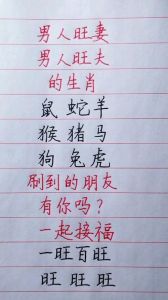 男人旺妻
男人旺夫
的生肖
鼠 蛇羊
猴 猪马
狗 兔虎
刷到的朋友
有你吗？
一起接福
一旺百旺
旺旺旺